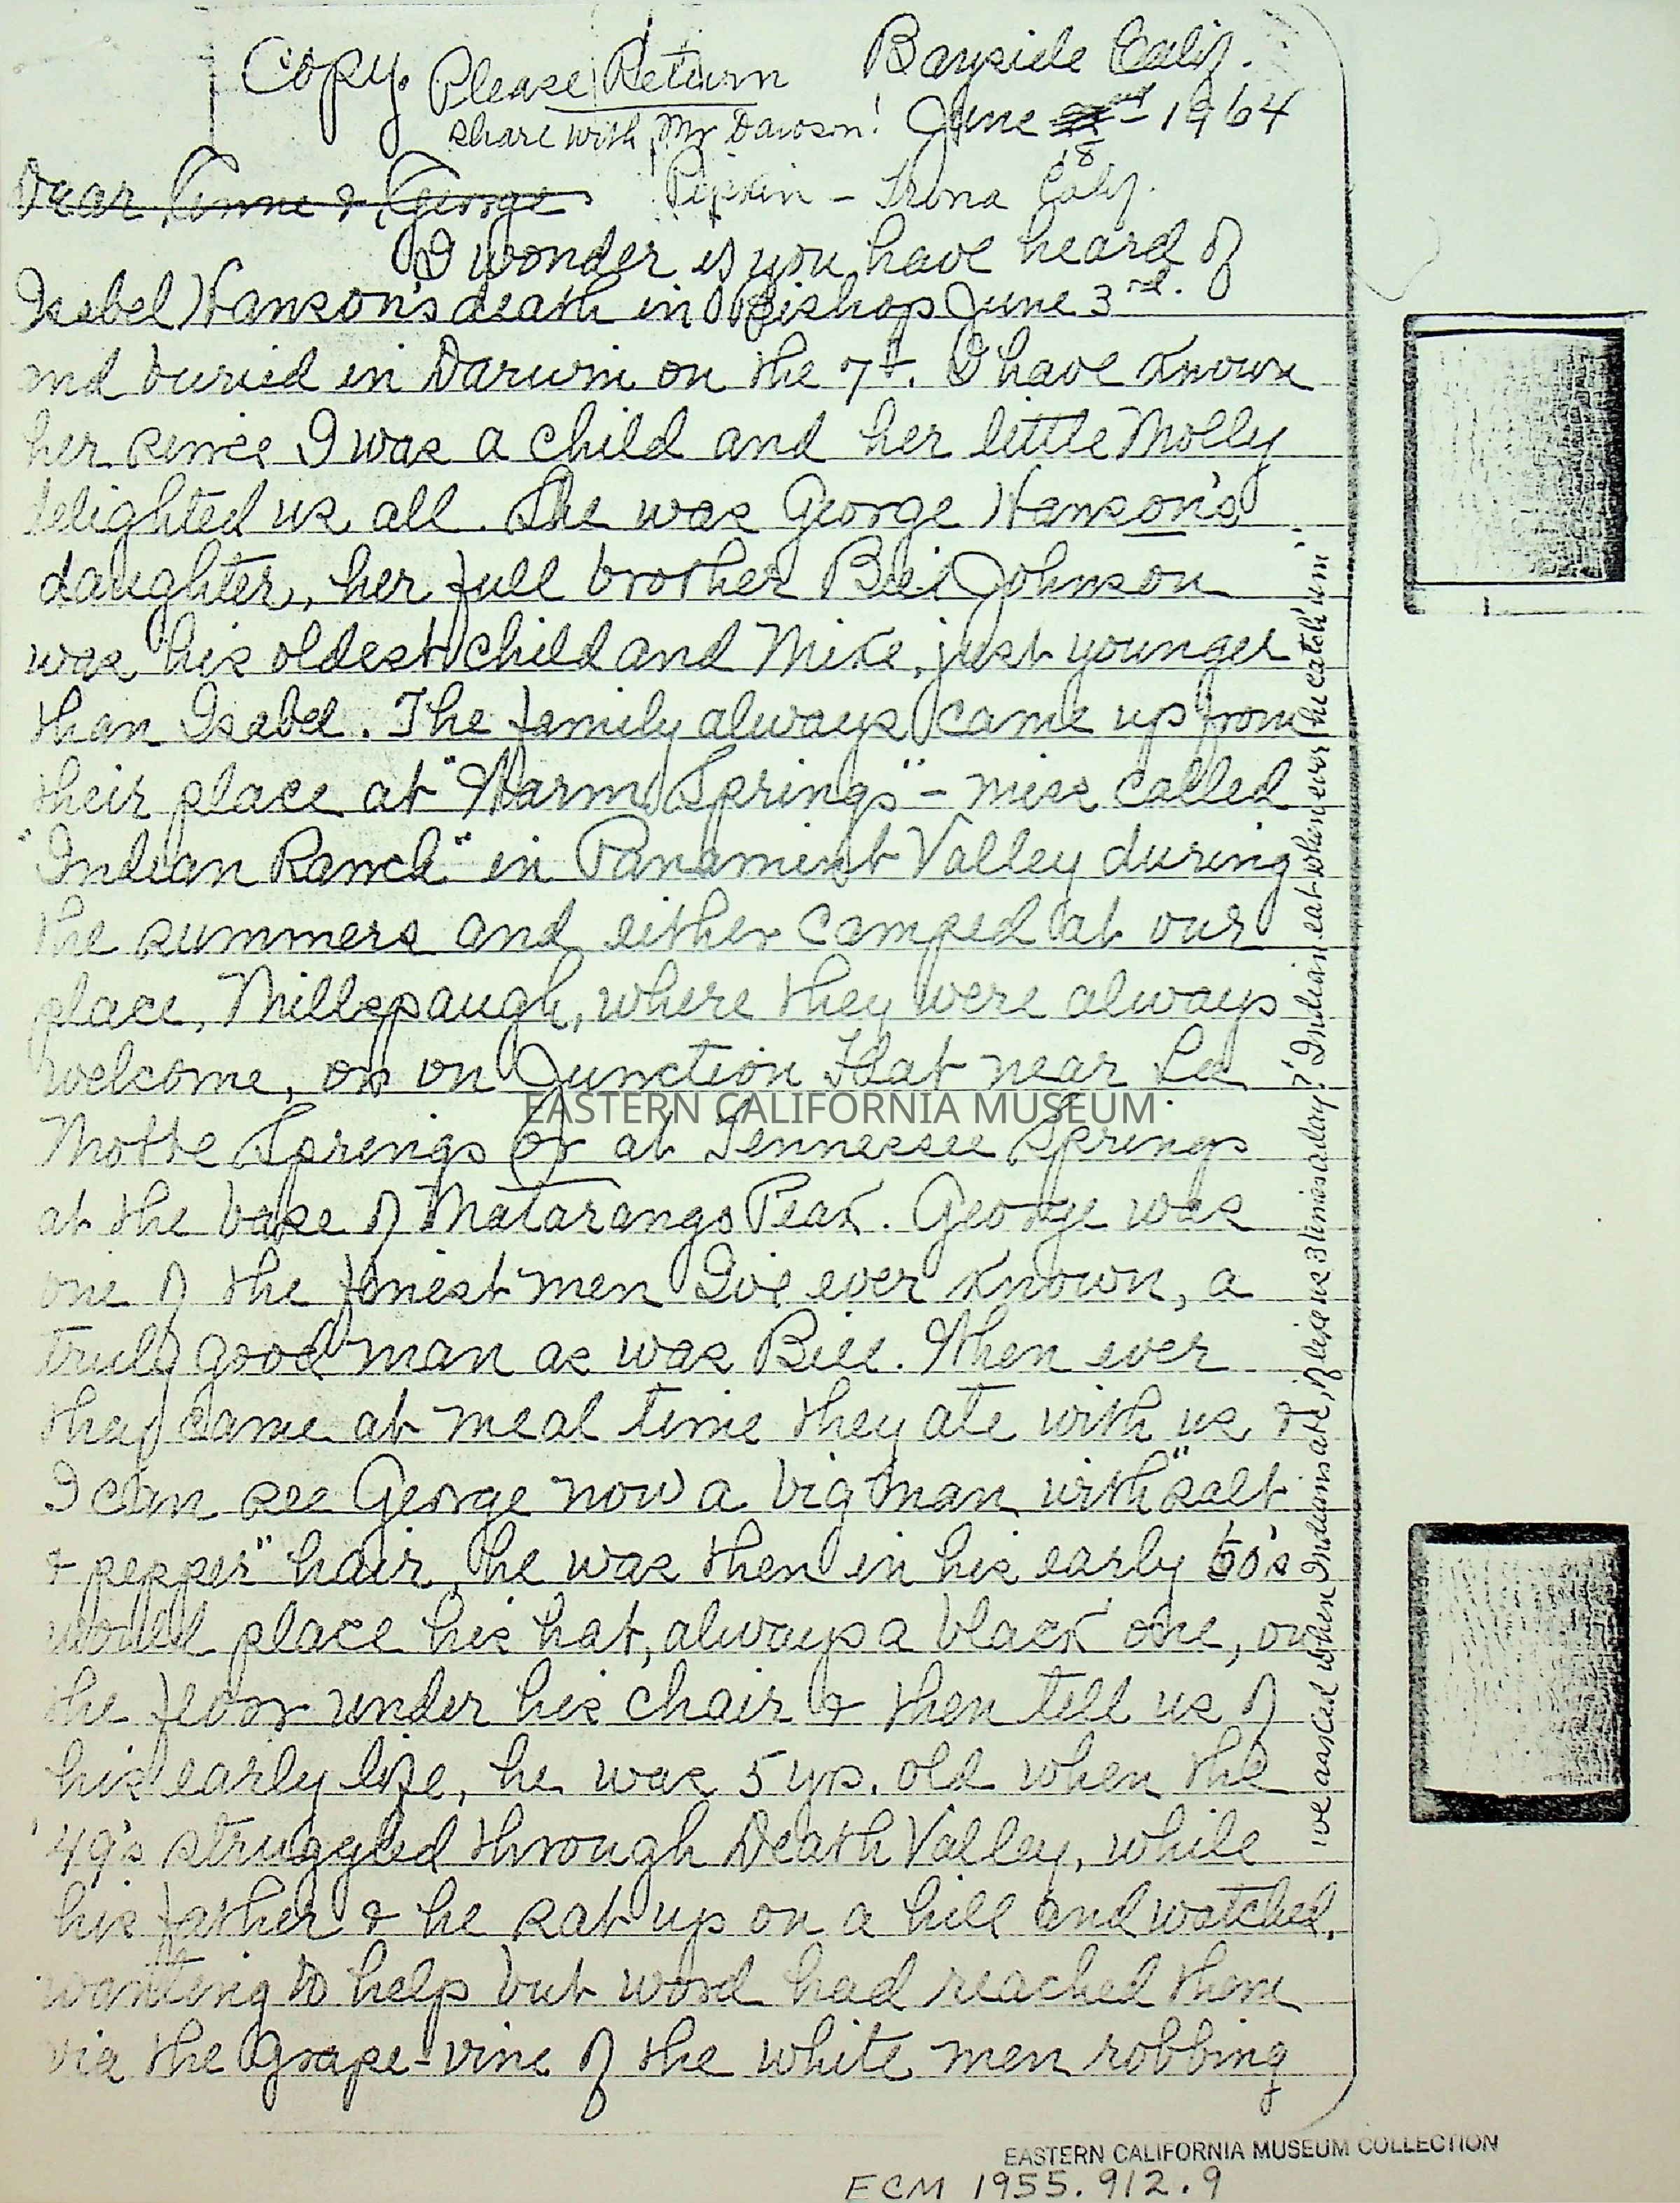 Copy. Please Return Bayside Calif.
Share with Mr Dawson! June 1964
18
Dear Anne & George Pipkin - Trona Calif.
I wonder if you have heard of
Isabel Hanson's death in Bishop June 3rd.
and buried in Darwin on the 7t. I have known
her since I was a child and her little Molly
delighted us all. She was George Hanson's
daughter, her full brother Bill Johnson
was his oldest child and Mike, just younger
than Isabel. The family always came up from
their place at "Warm Springs" - miss called
"Indian Ranch" in Panamint Valley during
the summers and either camped at our
place, Millspaugh, where they were always
welcome, or on Junction Flat near La
Motte Springs or at Tennessee Springs
at the base of Matarango Peak. George was
one of the finest men I've ever known, a
truly good man as was Bill. When ever
they came at meal time they ate with us &
I can see George now a big man with "salt
& pepper" hair, he was then in his early 60's
would place his hat, always a black one, on
the floor under his chair & then tell us of
his early life, he was 5 yrs. old when the
'49's struggled through Death Valley, while
his father & he sat up on a hill and watched,
wanting to help but word had reached them
via the Grape-vine of the white men robbing
we asked when Indians ate, if like us 3 times a day? "Indian eat when ever he catch 'um".
EASTERN CALIFORNIA MUSEUM
EASTERN CALIFORNIA MUSEUM COLLECTION
ECM 1955.912.9